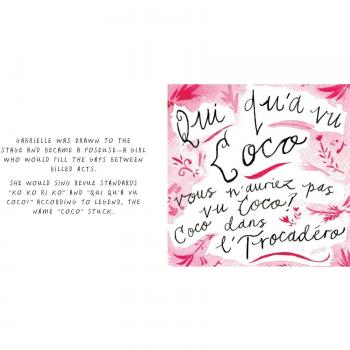 GABRIELLE WAS DRAWN TO THE
STAGE AND BECAME A POSEUSE—A GIRL
WHO WOULD FILL THE GAPS BETWEEN
BILLED ACTS.
SHE WOULD SING REVUE STANDARDS
"KO KO RI KO" AND "QUI QU'A VU
COCO!" ACCORDING TO LEGEND, THE
NAME "COCO" STUCK.
Qui qu'a vu
Coco
vous n'auriez pas
vu Coco?
Coco dans
l'Trocadéro